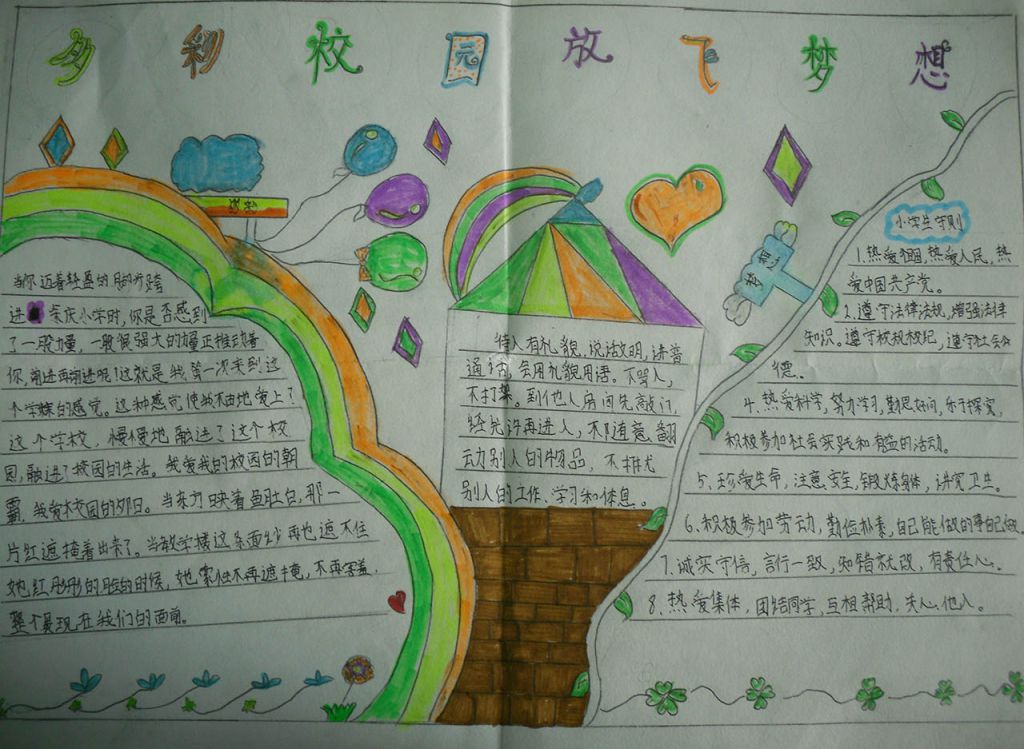 多彩校园放飞梦想
当你迈着轻盈的脚步跨
进 亲庆小学时,你是否感到
了一股力量,一股很强大的力量正推动着
你,前进再前进呢!这就是我第一次来到这
个学校的感觉。这种感觉使我不由地爱上了
这个学校,慢慢地融进了这个校
园,融进了校园的生活。我爱我的校园的朝
霞,我爱校园的夕日。当东方映着鱼肚白,那一
片红遮掩着出来了。当教学楼这条面纱再也遮不住
她红彤彤的脸的时候,她索性不再遮掩,不再害羞,
整个展现在我们的面前。
待人有礼貌,说话文明,讲普
通话,会用礼貌用语。不骂人,
不打架。到他人房间先敲门,
经允许再进入,不随意翻
动别人的物品,不打扰
别人的工作、学习和休息。
梦想
小学生守则
1.热爱祖国,热爱人民,热
爱中国共产党。
2.遵守法律法规,增强法律
知识。遵守校规校纪,遵守社会公
德。
4、热爱科学,努力学习,勤思好问,乐于探究,
积极参加社会实践和有益的活动。
5、珍爱生命,注意安全,锻炼身体,讲究卫生。
6、积极参加劳动,勤俭朴素,自己能做的事自己做。
7、诚实守信,言行一致,知错就改,有责任心。
8、热爱集体,团结同学,互相帮助,关心他人。